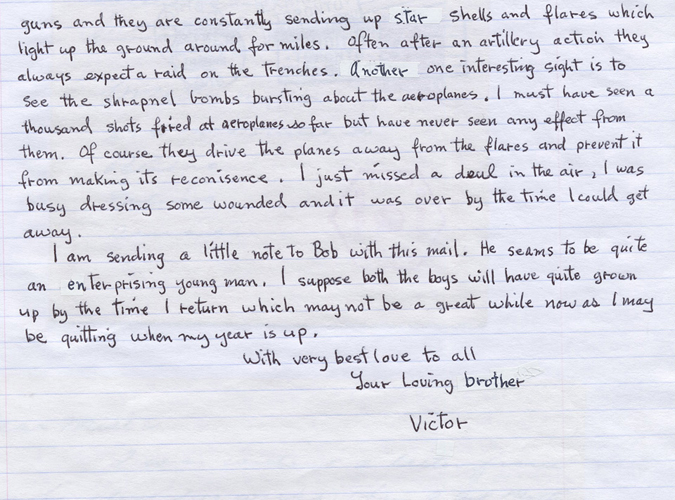 guns and they are constantly sending up star shells and flares which
light up the ground around for miles. Often after an artillery action they
always expect a raid on the trenches. Another one interesting sight is to
see the shrapnel bombs bursting about the aeroplanes. I must have seen a
thousand shots fired at aeroplanes so far but have never seen any effect from
them. Of course they drive the planes away from the flares and prevent it
from making its reconisence. I just missed a deul in the air, I was
busy dressing some wounded and it was over by the time I could get
away.
I am sending a little note to Bob with this mail. He seams to be quite
an enterprising young man. I suppose both the boys will have quite grown
up by the time I return which may not be a great while now as I may
be quitting when my year is up.
With very best love to all
Your Loving brother
Victor